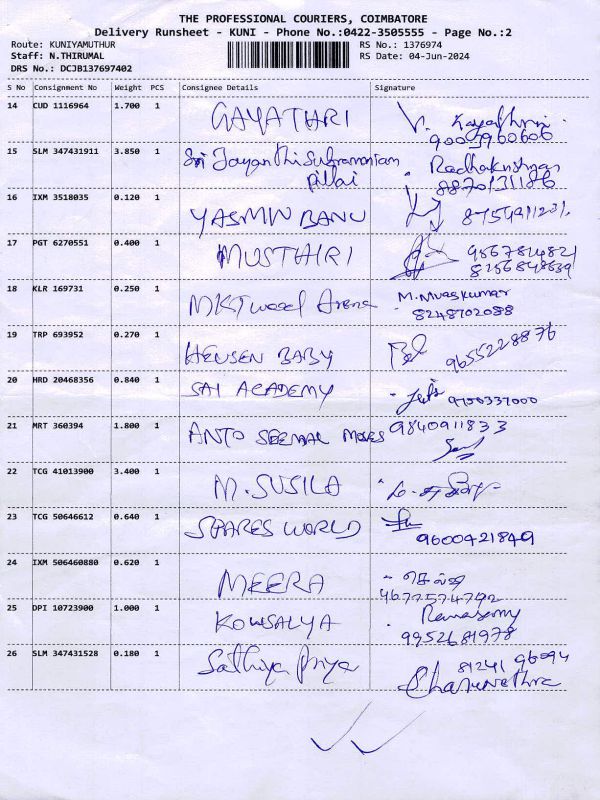 THE PROFESSIONAL COURIERS, COIMBATORE
Delivery Runsheet - KUNI - Phone No.:0422-3505555 - Page No.:2
Route: KUNIYAMUTHUR RS No.: 1376974
Staff: N.THIRUMAL RS Date: 04-Jun-2024
DRS No.: DCJB137697402
S No Consignment No Weight PCS Consignee Details Signature
14 CUD 1116964 1.700 1 GAYATHRI
9003960606
15 SLM 347431911 3.850 1 Sri Jayanthi Subramanian Radhakrishnan
pillai 8870131186
16 IXM 3518035 0.120 1 YASMIN BANU
17 PGT 6270551 0.400 1 MUSTHIRI
18 KLR 169731 0.250 1 MKT wood Arena M.Muaskumar
8248702088
19 TRP 693952 0.270 1 HENSEN BABY 9655228876
20 HRD 20468356 0.840 1 SAI ACADEMY
21 MRT 360394 1.800 1 ANTO 9840911833
22 TCG 41013900 3.400 1 M. SUSILA
23 TCG 50646612 0.640 1 SPARES WORLD
9600421849
24 IXM 506460880 0.620 1 MEERA
25 DPI 10723900 1.000 1 KOWSALYA Ramasamy
9952681978
26 SLM 347431528 0.180 1 Sathiya Priya 81241 96094